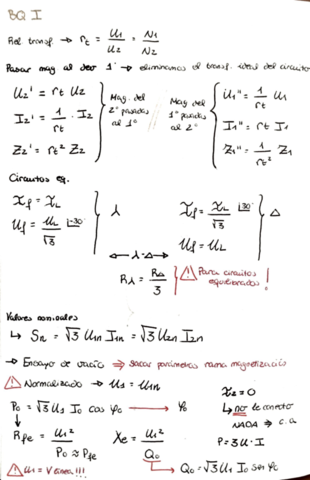 BQ I
Rel. transf. → rt = U1/U2 = N1/N2
Pasar mag al devo 1º → eliminamos el transf. ideal del circuito
U2' = rt U2
I2' = 1/rt · I2
Z2' = rt² Z2
Mag. del 2º pasadas al 1º
Mag. del 1º pasadas al 2º
U1'' = 1/rt U1
I1'' = rt I1
Z1'' = 1/rt² Z1
Circuitos eq.
If = IL
Uf = UL/√3 |-30°
λ
If = IL/√3 |30°
Uf = UL
Δ
λ-Δ
Rλ = RΔ/3
⚠ Para circuitos equilibrados!
Valores nominales
↳ Sn = √3 U1n I1n = √3 U2n I2n
→ Ensayo de vacío ⇒ sacar parámetros rama magnetización
⚠ Normalizado → U1 = U1n
P0 = √3 U1 I0 cos φ0 → φ0
RFe = U1²/P0 ≈ PFe
Xe = U1²/Q0
⚠ U1 = V línea!!!
Q0 = √3 U1 I0 sen φ0
I2 = 0
↳ no le conecto
NADA → c.a.
P = 3 U · I